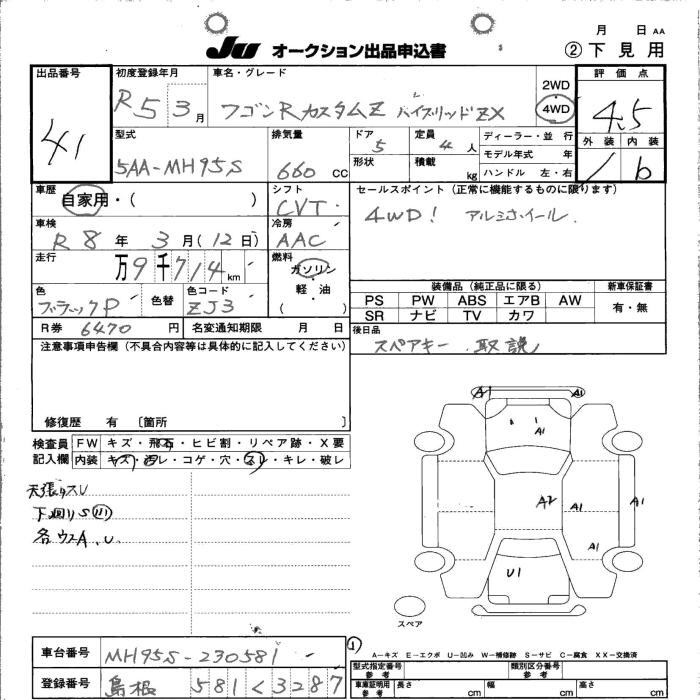 月 日 AA
JU オークション出品申込書 ②下見用
出品番号 初度登録年月 車名・グレード 2WD 評価点
41 R5 3月 ワゴンRカスタムZ ハイブリッドZX 4WD 4.5
型式 排気量 ドア 定員 ディーラー・並行 外装 内装
5AA-MH95S 660 CC 5 4 人 モデル年式 年 1 b
形状 積載 kg ハンドル 左・右
車歴 シフト セールスポイント(正常に機能するものに限ります)
自家用・( ) CVT 4WD! アルミホイール
車検 冷房
R8年 3月(12日) AAC
走行 燃料
万9千714km ガソリン
軽・油
( )
装備品(純正品に限る) 新車保証書
色 色替 色コード PS PW ABS エアB AW 有・無
ブラックP ZJ3 SR ナビ TV カワ
R券 6470円 名変通知期限 月 日 後日品
スペアキー 取説
注意事項申告欄(不具合内容等は具体的に記入してください)
修復歴 有 [箇所 ]
検査員 FW キズ・飛石・ヒビ割・リペア跡・X要
記入欄 内装 キズ・汚レ・コゲ・穴・スレ・キレ・破レ
天張りスレ
下廻りS
各ウスA、U
A1 A1
A1
A2 A1 A1
A1
U1
スペア
車台番号 MH95S-230581 ①
登録番号 島根 581 く 3287
A-キズ E-エクボ U-凹み W-補修跡 S-サビ C-腐食 XX-交換済
型式指定番号 参考 類別区分番号 参考
車庫証明用 参考 長さ cm 幅 cm 高さ cm